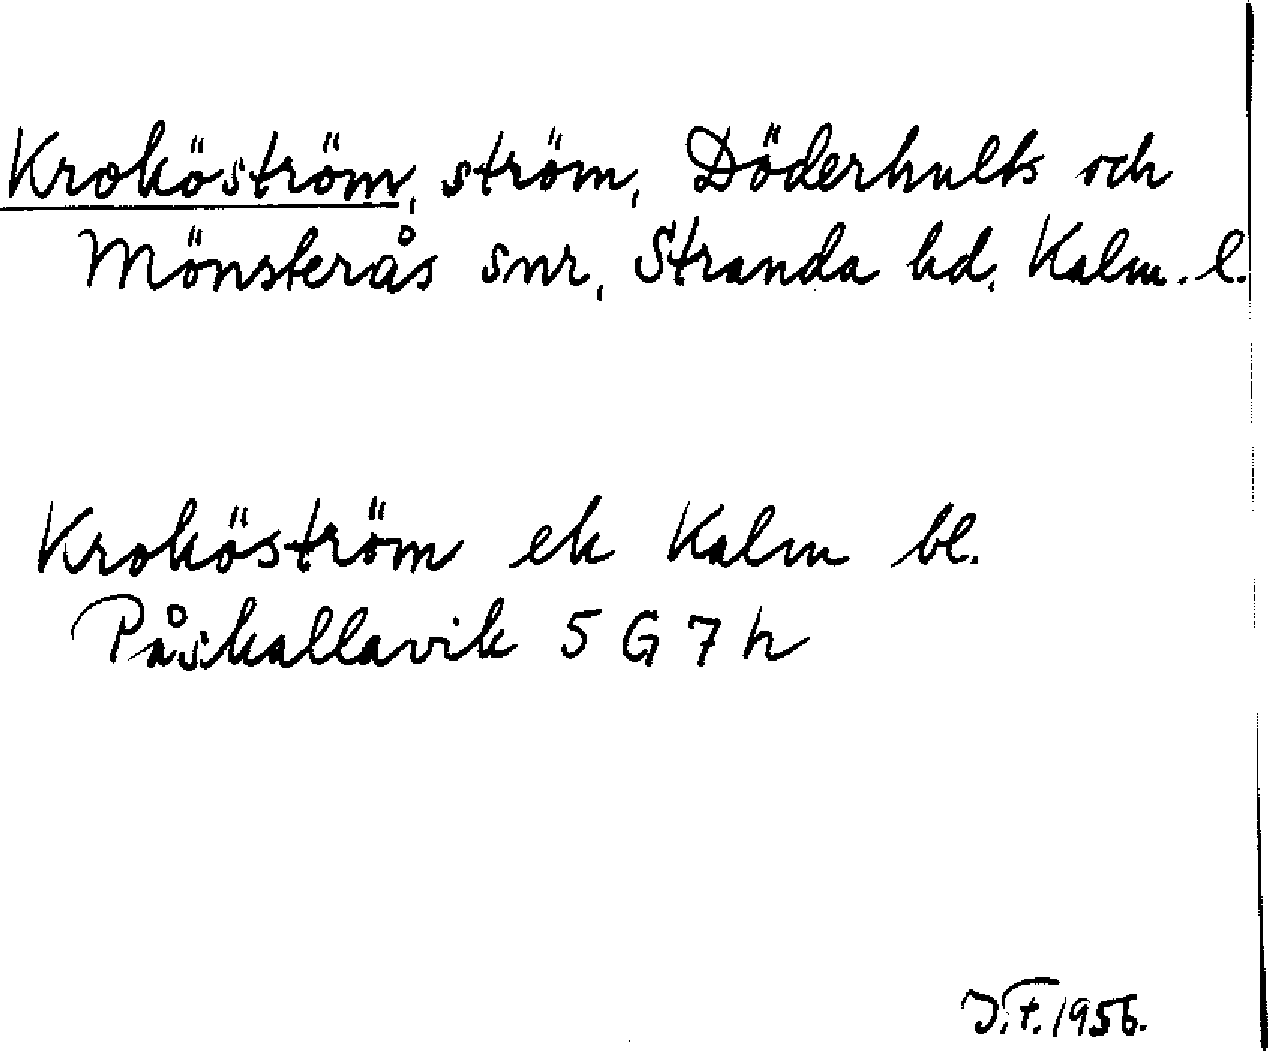 Kroköström, ström, Döderhults och
Mönsterås snr, Stranda hd, Kalm. l.
Kroköström ek Kalm bl.
Påskallavik 5 G 7 h
J.F. 1956.